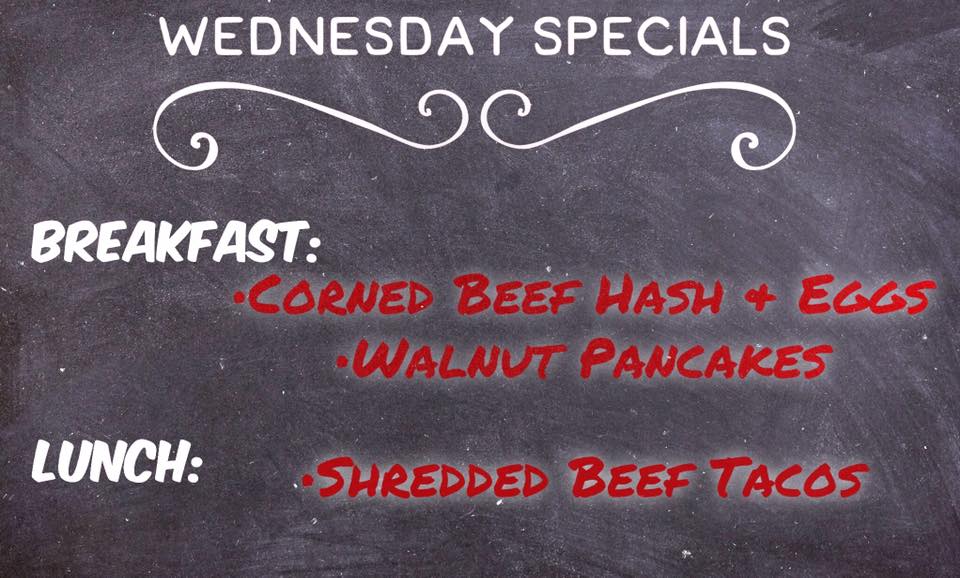 WEDNESDAY SPECIALS
BREAKFAST:
•CORNED BEEF HASH & EGGS
•WALNUT PANCAKES
LUNCH:
•SHREDDED BEEF TACOS